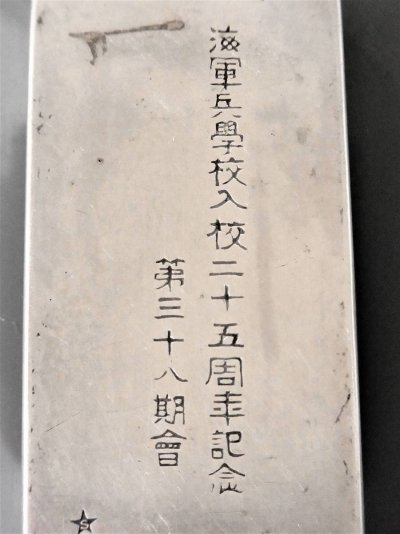 海軍兵學校入校二十五周年記念
第三十八期會
S